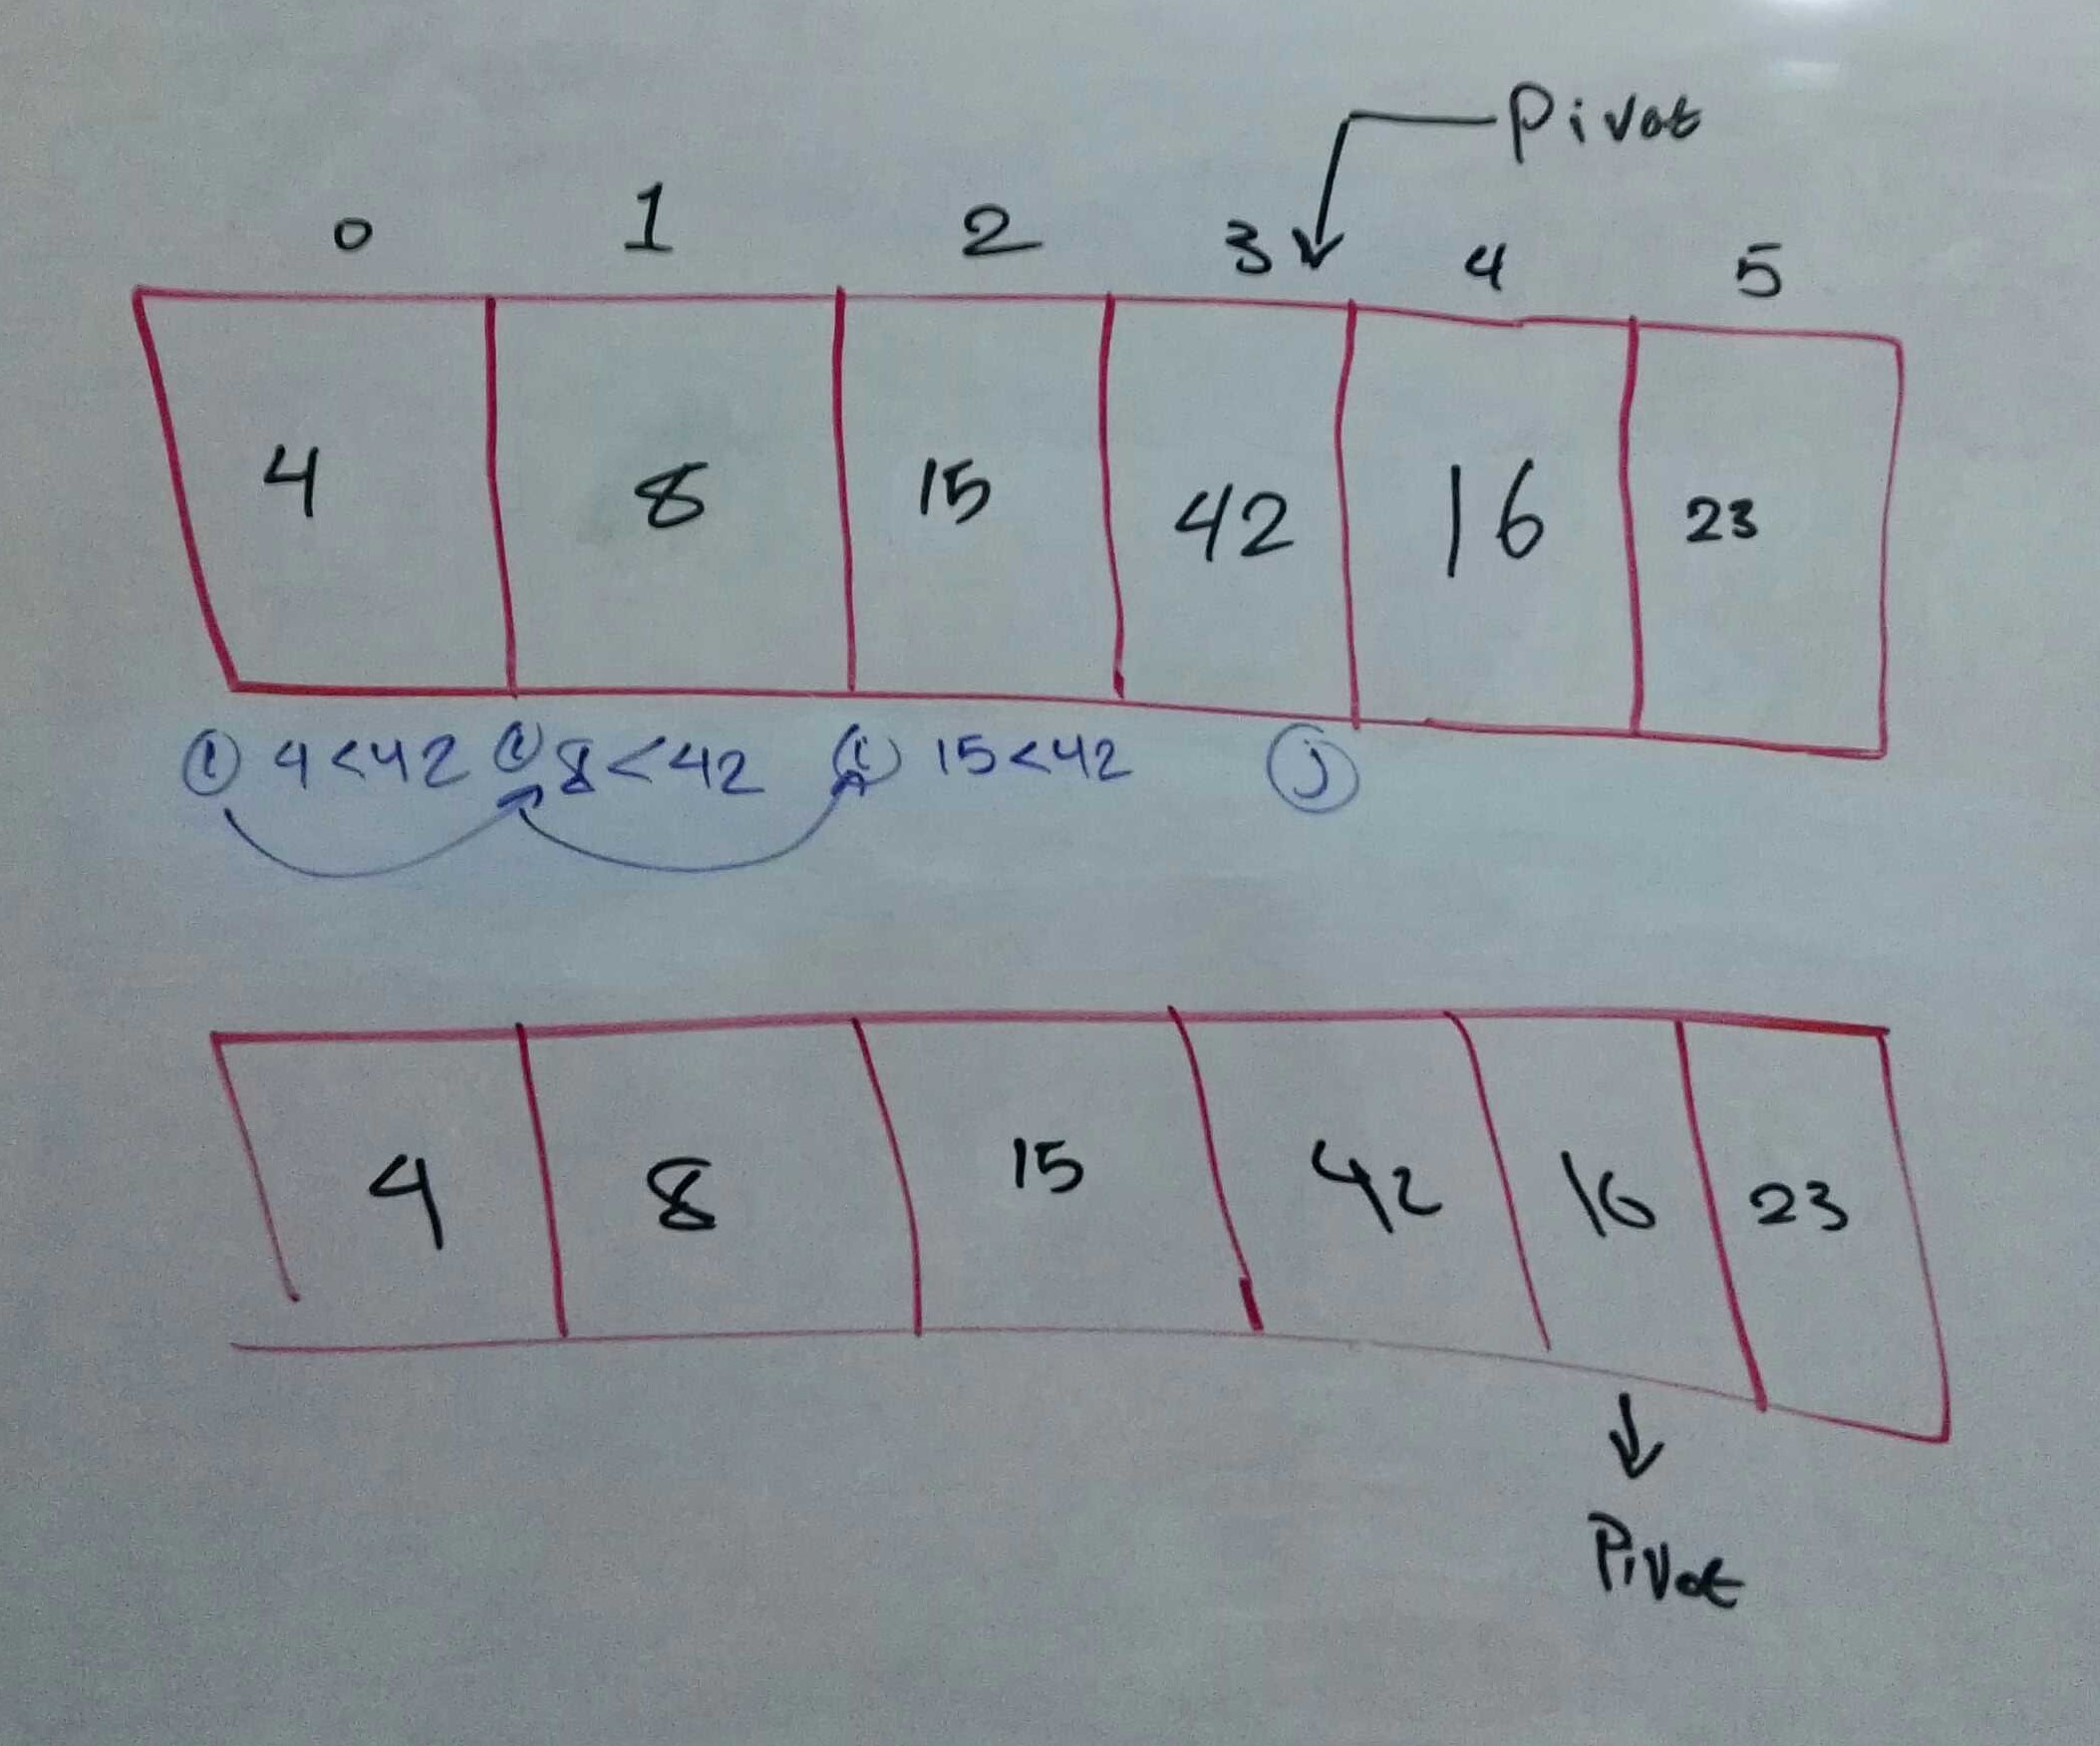 Pivot
0 1 2 3 4 5
4 8 15 42 16 23
i 4<42 i 8<42 i 15<42 j
4 8 15 42 16 23
Pivot